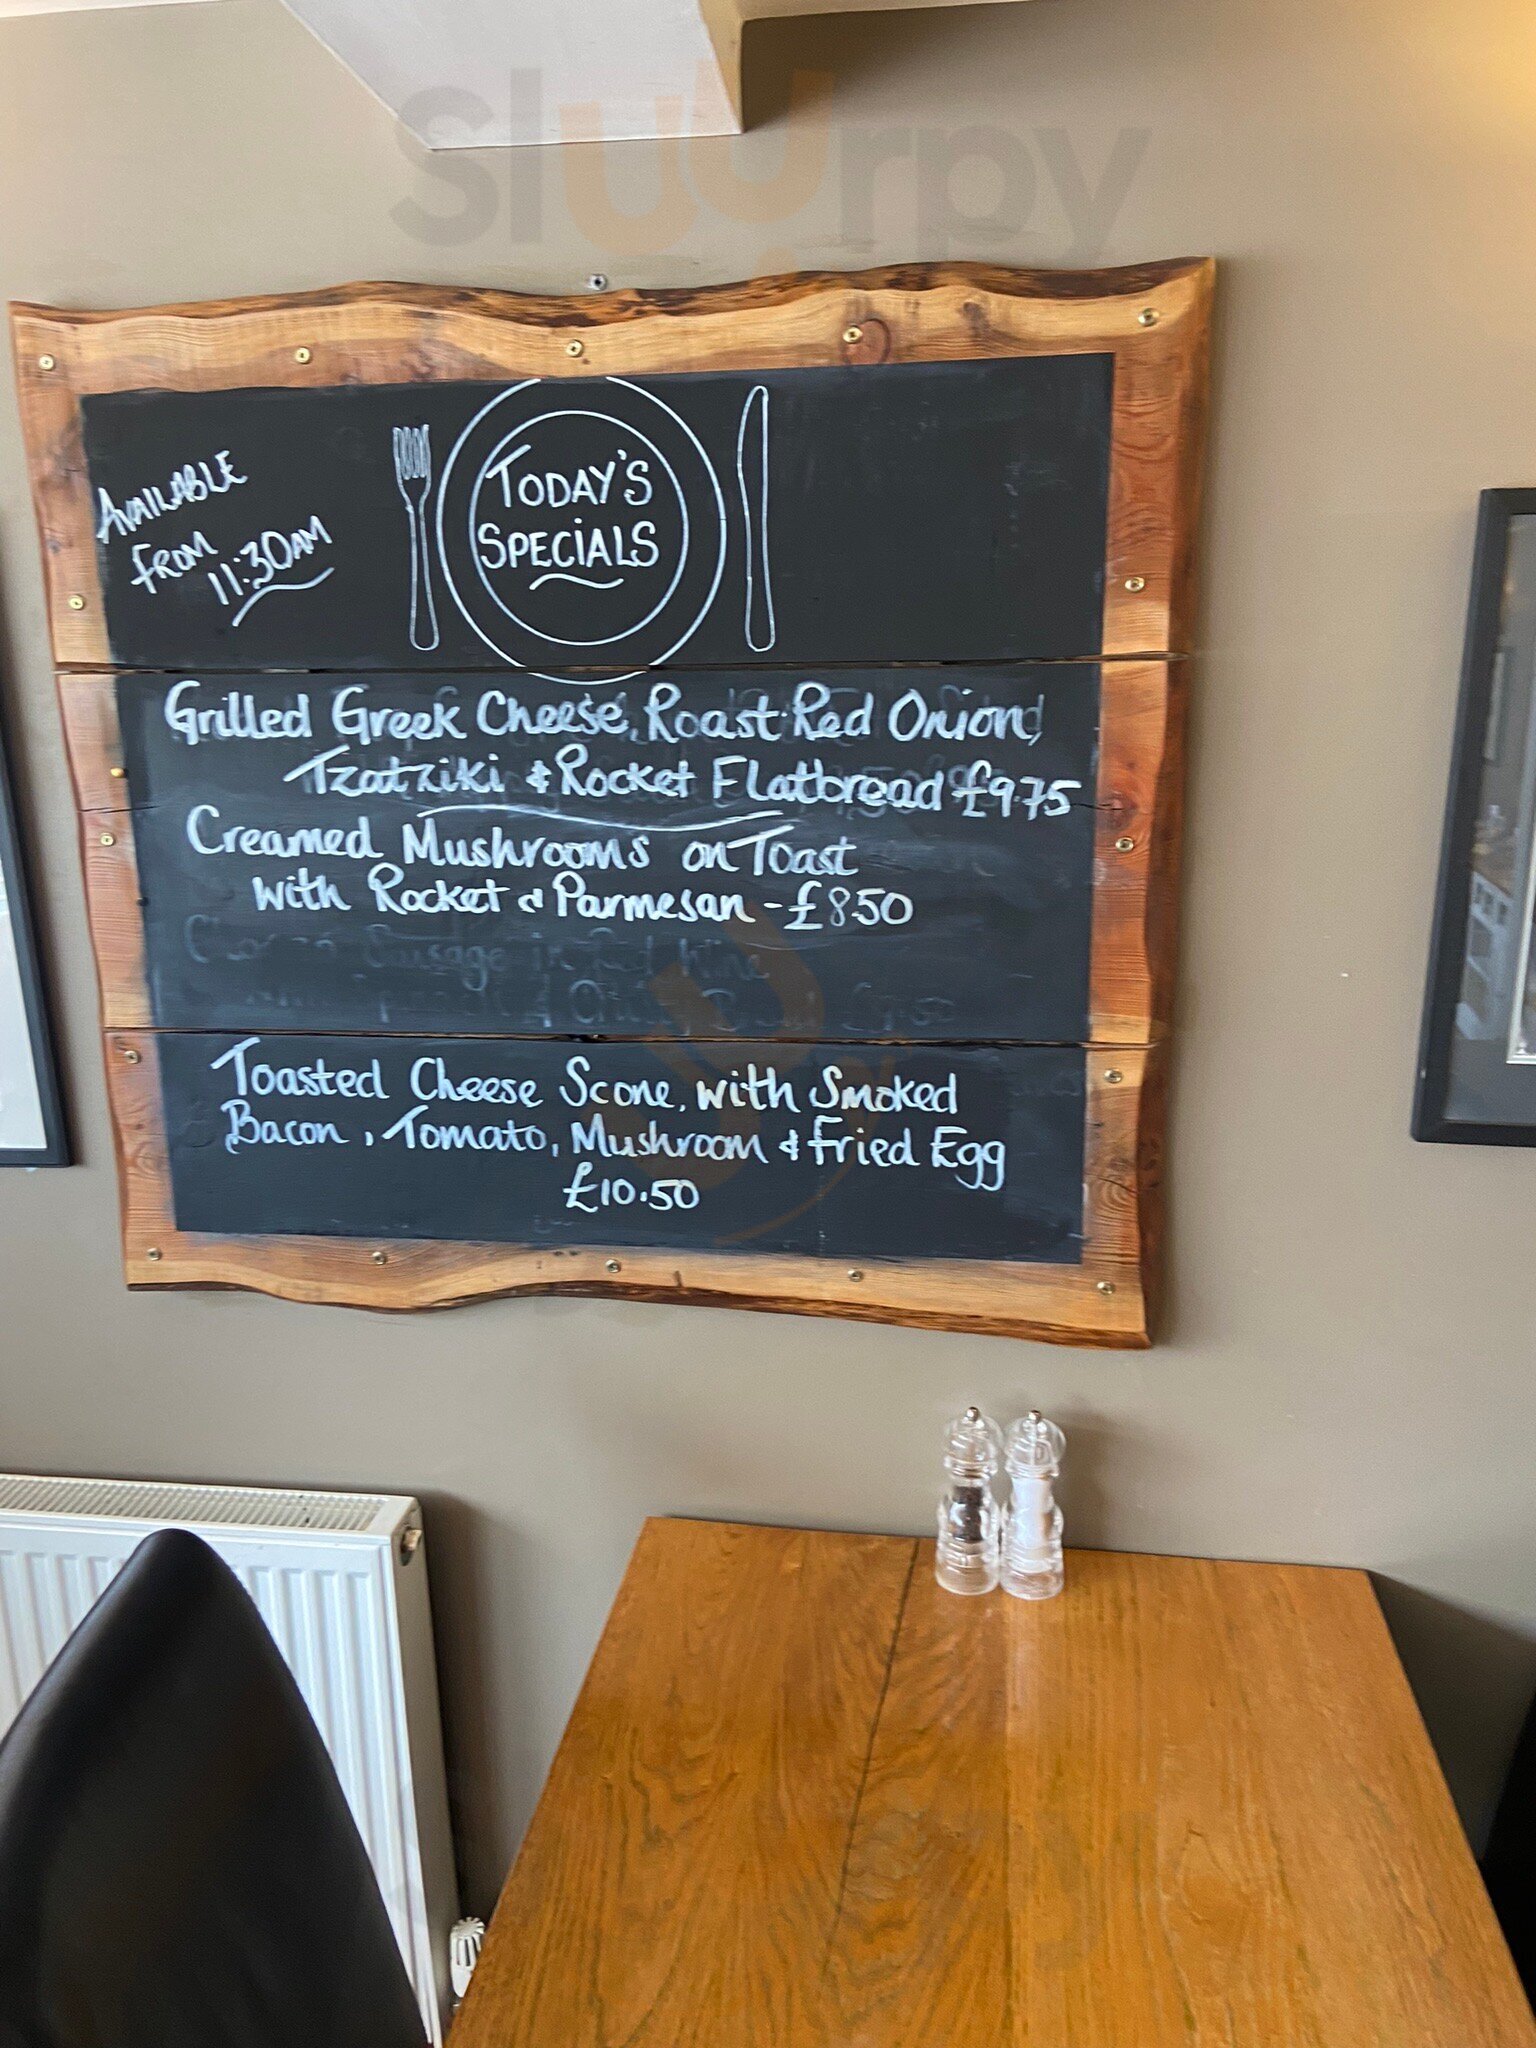 sluurpy
AVAILABLE
FROM
11:30AM
TODAY'S
SPECIALS
Grilled Greek Cheese, Roast Red Onion,
Tzatziki & Rocket Flatbread £9.75
Creamed Mushrooms on Toast
with Rocket & Parmesan - £8.50
Sausage in Red Wine
Toasted Cheese Scone, with Smoked
Bacon, Tomato, Mushroom & Fried Egg
£10.50